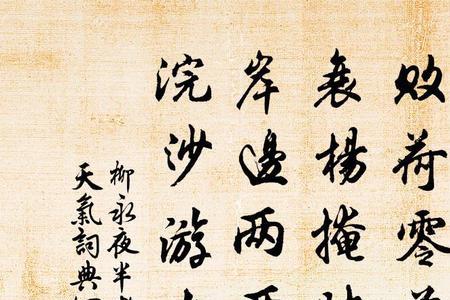 敗荷零
衰楊掩
岸邊兩
浣沙游
柳永夜半
天氣詞典